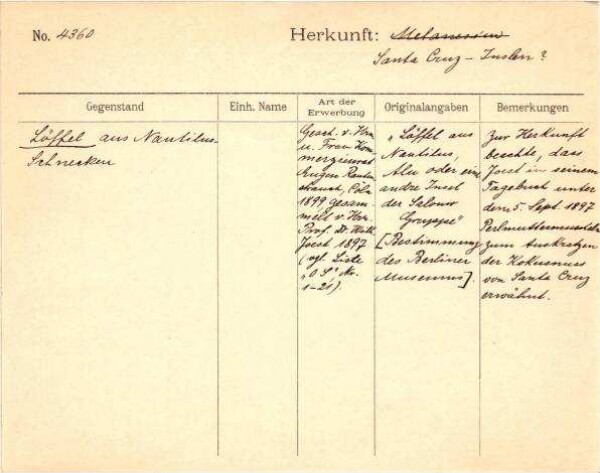 No. 4360
Herkunft: Melanesien
Santa Cruz - Inseln?
Gegenstand
Einh. Name
Art der Erwerbung
Originalangaben
Bemerkungen
Löffel aus Nautilus-
Schnecken
Gesch. v. Hrn
u. Frau Kom
merzienrat
Eugen Rauten
strauch, Cöln
1899 gesam-
melt v. Hrn.
Prof. Dr. Wilh.
Joest 1897
(vgl. Liste
"O S", No.
1-21).
"Löffel aus
Nautilus,
Alu oder ein
andre Insel
der Salomo
Gruppe"
[Bestimmung
des Berliner
Museums].
Zur Herkunft
beachte, dass
Joest in seinem
Tagebuch unter
dem 5. Sept. 1897
zum Auskratzen
der Kokusnuss
von Santa Cruz
erwähnt.